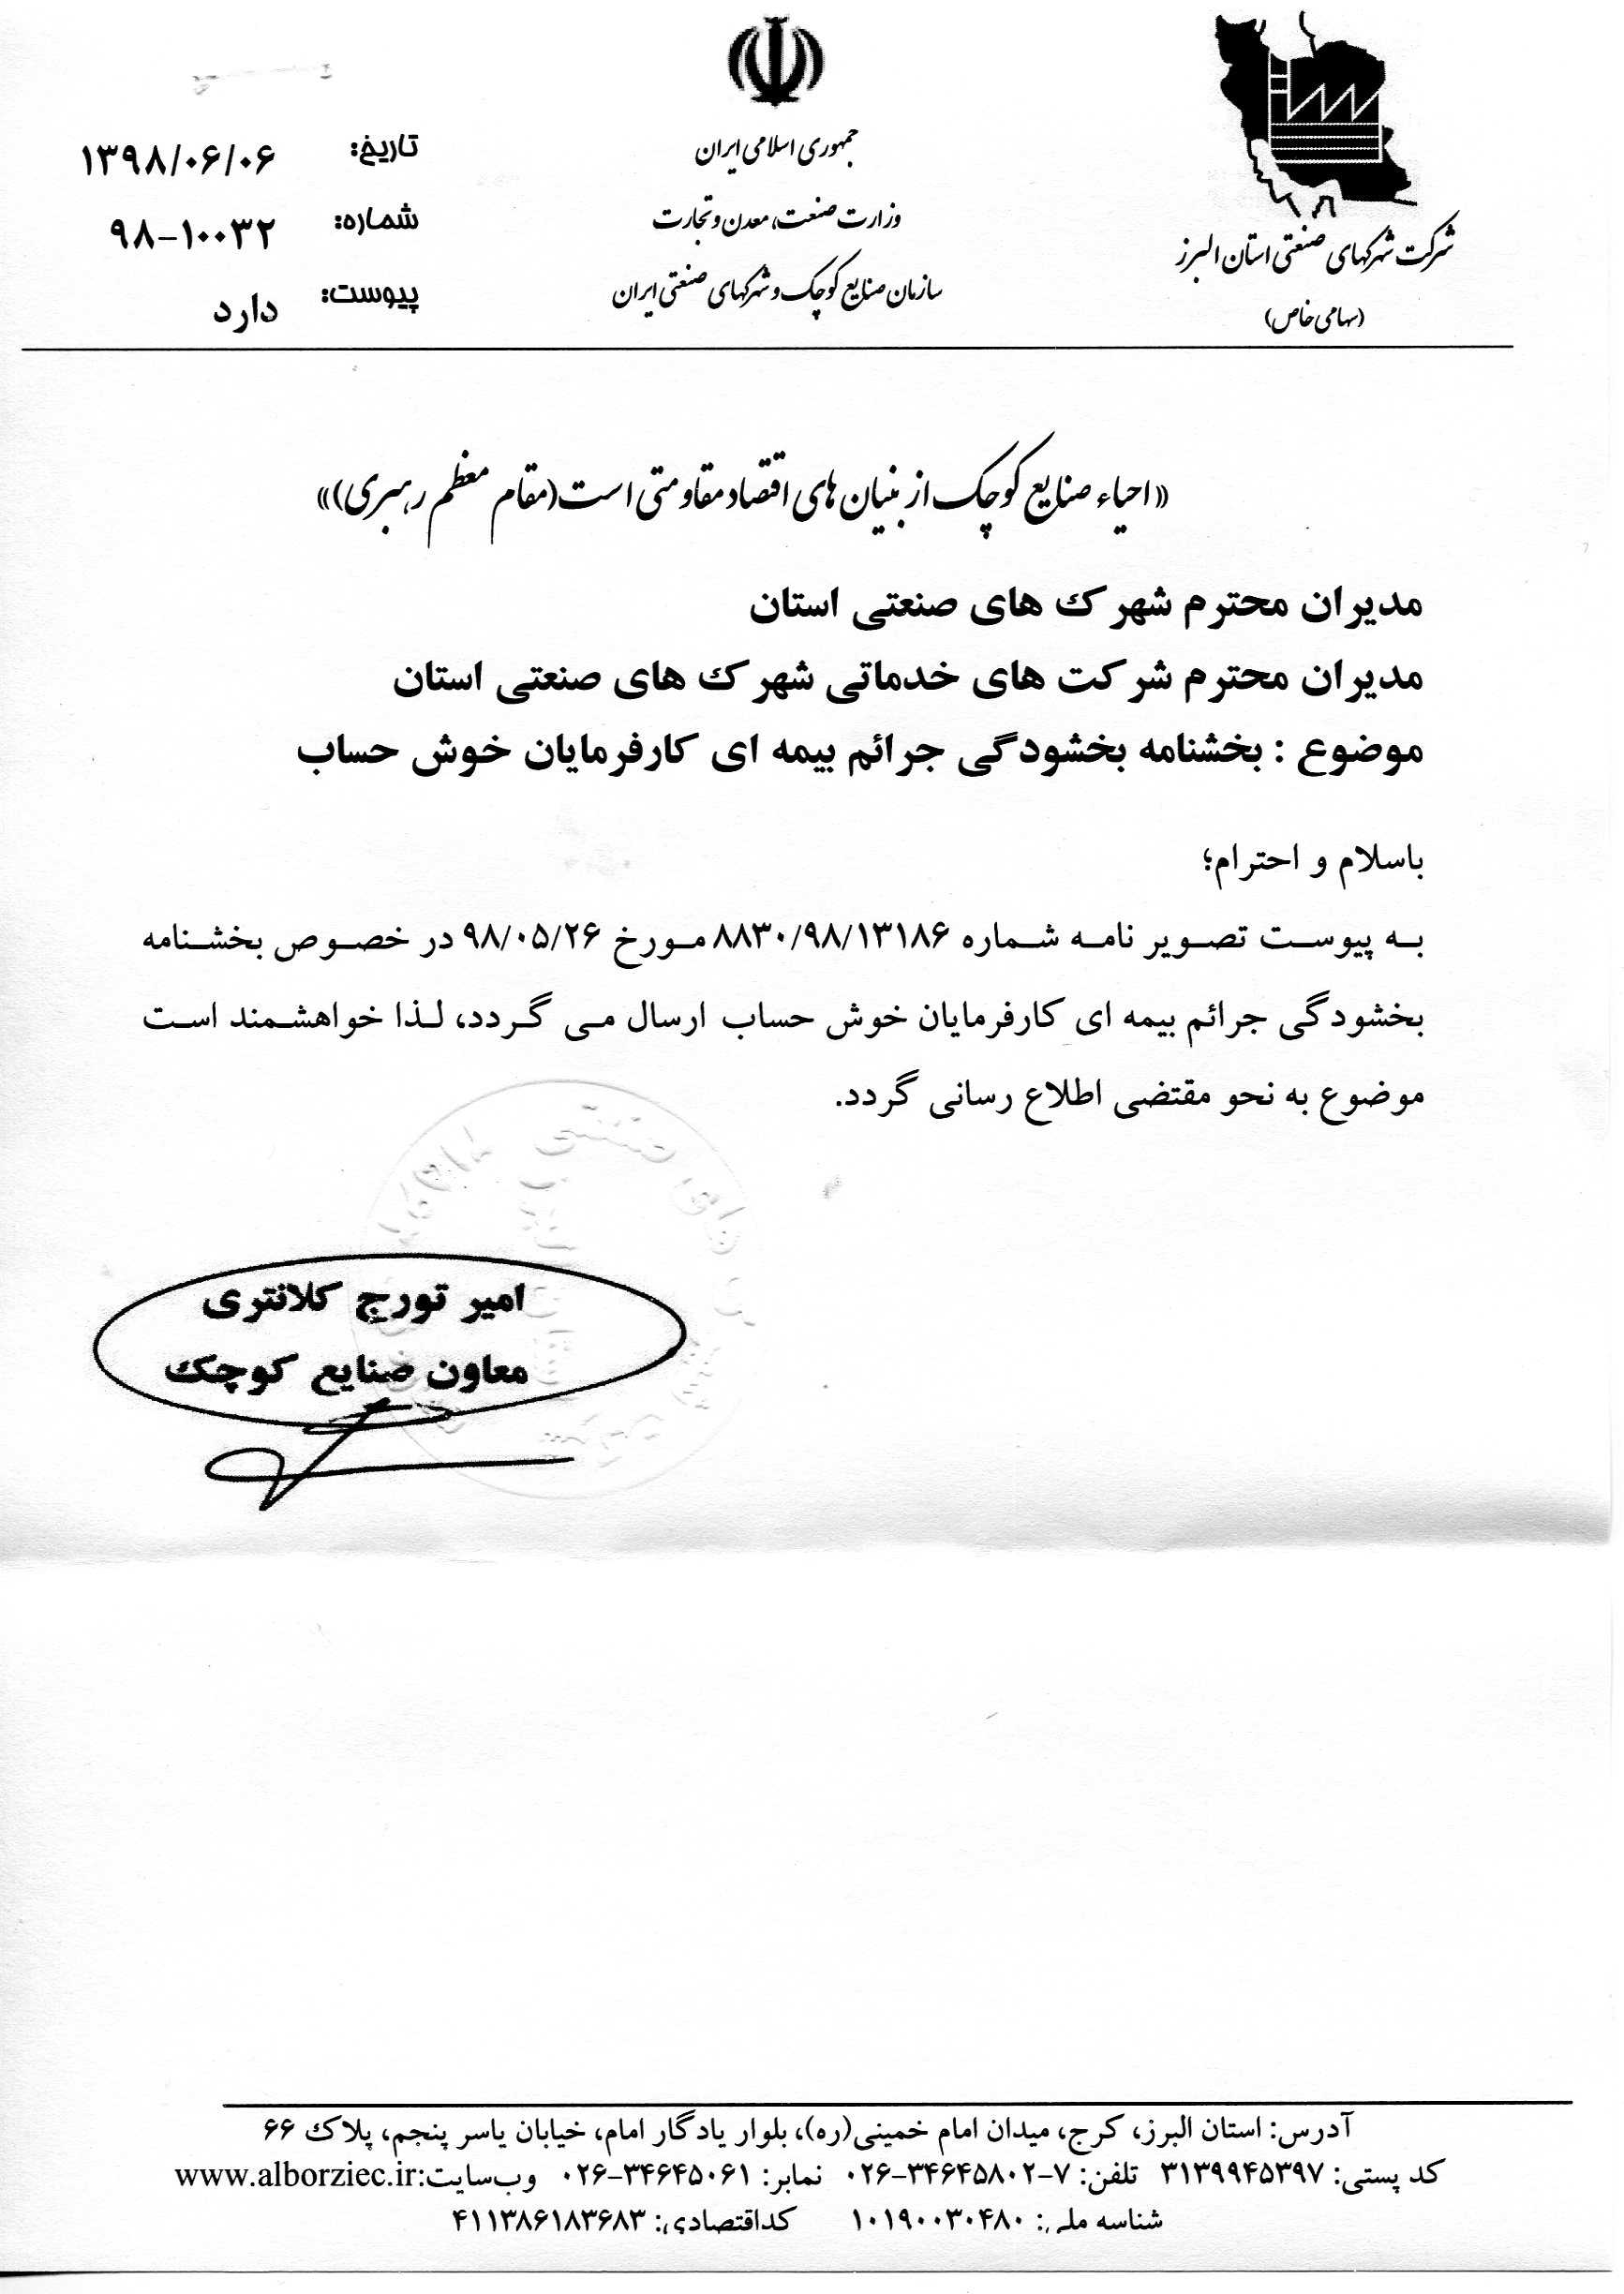 جمهوری اسلامی ایران
وزارت صنعت، معدن و تجارت
سازمان صنایع کوچک و شهرکهای صنعتی ایران
شرکت شهرکهای صنعتی استان البرز
(سهامی خاص)
تاریخ: ۱۳۹۸/۰۶/۰۶
شماره: ۹۸-۱۰۰۳۲
پیوست: دارد
«احیاء صنایع کوچک از بنیان های اقتصاد مقاومتی است(مقام معظم رهبری)»
مدیران محترم شهرک های صنعتی استان
مدیران محترم شرکت های خدماتی شهرک های صنعتی استان
موضوع : بخشنامه بخشودگی جرائم بیمه ای کارفرمایان خوش حساب
باسلام و احترام؛
به پیوست تصویر نامه شماره ۸۸۳۰/۹۸/۱۳۱۸۶ مورخ ۹۸/۰۵/۲۶ در خصوص بخشنامه
بخشودگی جرائم بیمه ای کارفرمایان خوش حساب ارسال می گردد، لذا خواهشمند است
موضوع به نحو مقتضی اطلاع رسانی گردد.
امیر تورج کلانتری
معاون صنایع کوچک
آدرس: استان البرز، کرج، میدان امام خمینی(ره)، بلوار یادگار امام، خیابان یاسر پنجم، پلاک ۶۶
کد پستی: ۳۱۳۹۹۴۵۳۹۷ تلفن: ۷-۰۲۶-۳۴۶۴۵۸۰۲ نمابر: ۰۲۶-۳۴۶۴۵۰۶۱ وب‌سایت:www.alborziec.ir
شناسه ملی: ۱۰۱۹۰۰۳۰۴۸۰ کداقتصادی: ۴۱۱۳۸۶۱۸۳۶۸۳